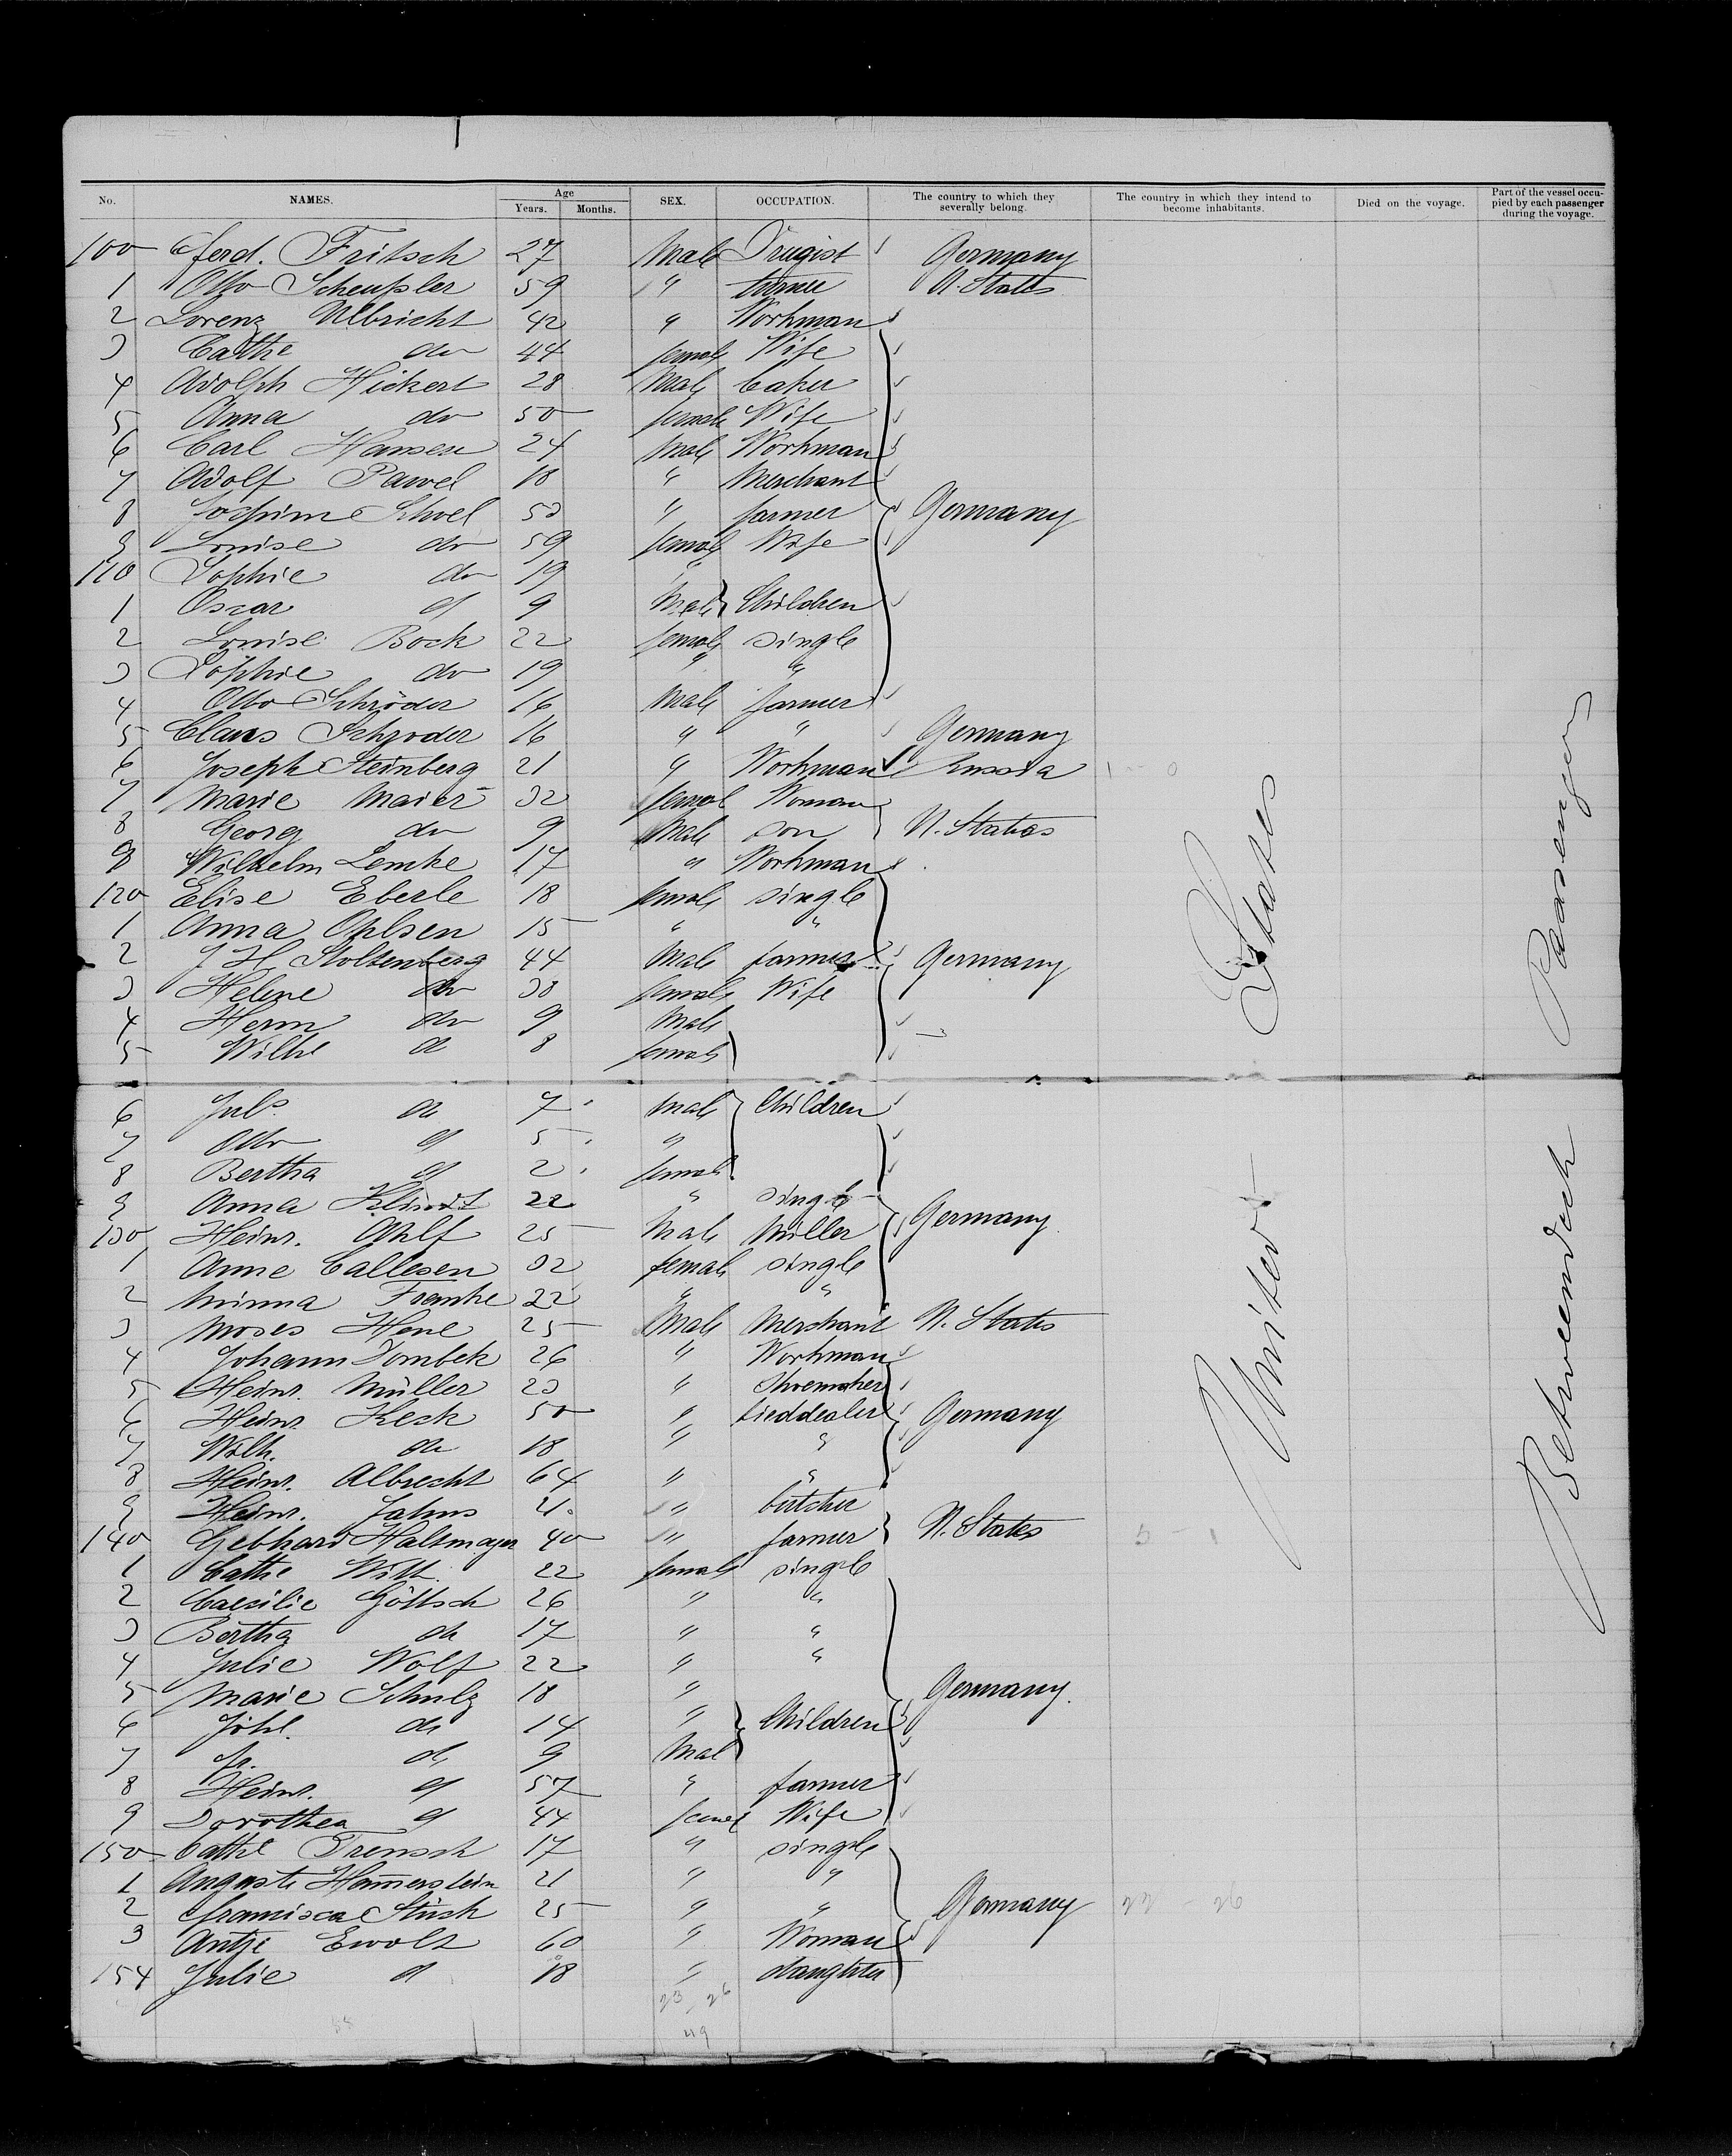 No. NAMES. Age Years. Months. SEX. OCCUPATION. The country to which they severally belong. The country in which they intend to become inhabitants. Died on the voyage. Part of the vessel occupied by each passenger during the voyage.
100 Ferd. Fritsch 27 Male Drugist Germany
1 Otto Scheußler 59 " turner U. States
2 Lorenz Ulbricht 42 " Workman
3 Cathe do 44 female Wife
4 Adolph Hickert 28 Male baker
5 Anna do 50 female Wife
6 Carl Hansen 24 Male Workman
7 Adolf Pawel 18 " Merchant
8 Jochim Schoel 53 " farmer Germany
9 Louise do 59 female Wife
110 Sophie do 19 "
1 Oscar d 9 Male Children
2 Louise Bock 22 female single
3 Sophie do 19 " "
4 Otto Schröder 16 Male farmer
5 Claus Schroder 16 " " Germany
6 Joseph Steinberg 21 " Workman Russia
7 Marie Maier 32 female Woman
8 Georg do 9 Male son U. States
9 Wilhelm Lemke 17 " Workman
120 Elise Eberle 18 female single
1 Anna Ohlsen 15 " "
2 J. H. Stoltenberg 44 Male farmer Germany
3 Helene do 38 female Wife
4 Herm do 9 Male
5 Wilhe d 8 female
6 Juls d 7 Male Children
7 Otto d 5 "
8 Bertha d 2 female
9 Anna Klindt 22 " single
130 Heinr. Ohlf 25 Male Miller Germany
1 Anne Callesen 32 female single
2 Minna Franke 22 " "
3 Moses Hene 25 Male Merchant U. States
4 Johann Dombek 26 " Workman
5 Heinr. Müller 23 " Shoemaker
6 Heinr. Keck 50 " Germany
7 Wilh. do 18 " "
8 Heinr. Albrecht 64 " "
9 Heinr. Jahns 21 " butcher
140 Gebhard Haltmayer 40 " farmer U. States
1 Cathe Witt 22 female single
2 Caecilie Göttsch 26 " "
3 Bertha do 17 " "
4 Julie Wolf 22 " "
5 Marie Schulz 18 " Germany.
6 Johl. do 14 " Children
7 d 9 Mal
8 Heinr. d 57 " farmer
9 Dorothea d 44 femal Wife
150 Cathe Trensch 17 " single
1 Auguste Ham̅erstein 21 " "
2 Franzisca Stück 25 " " Germany
3 Antje Ewolt 60 " Woman
154 Julie d 18 " daughter
23 26
49
United States
Betweendeck Passengers